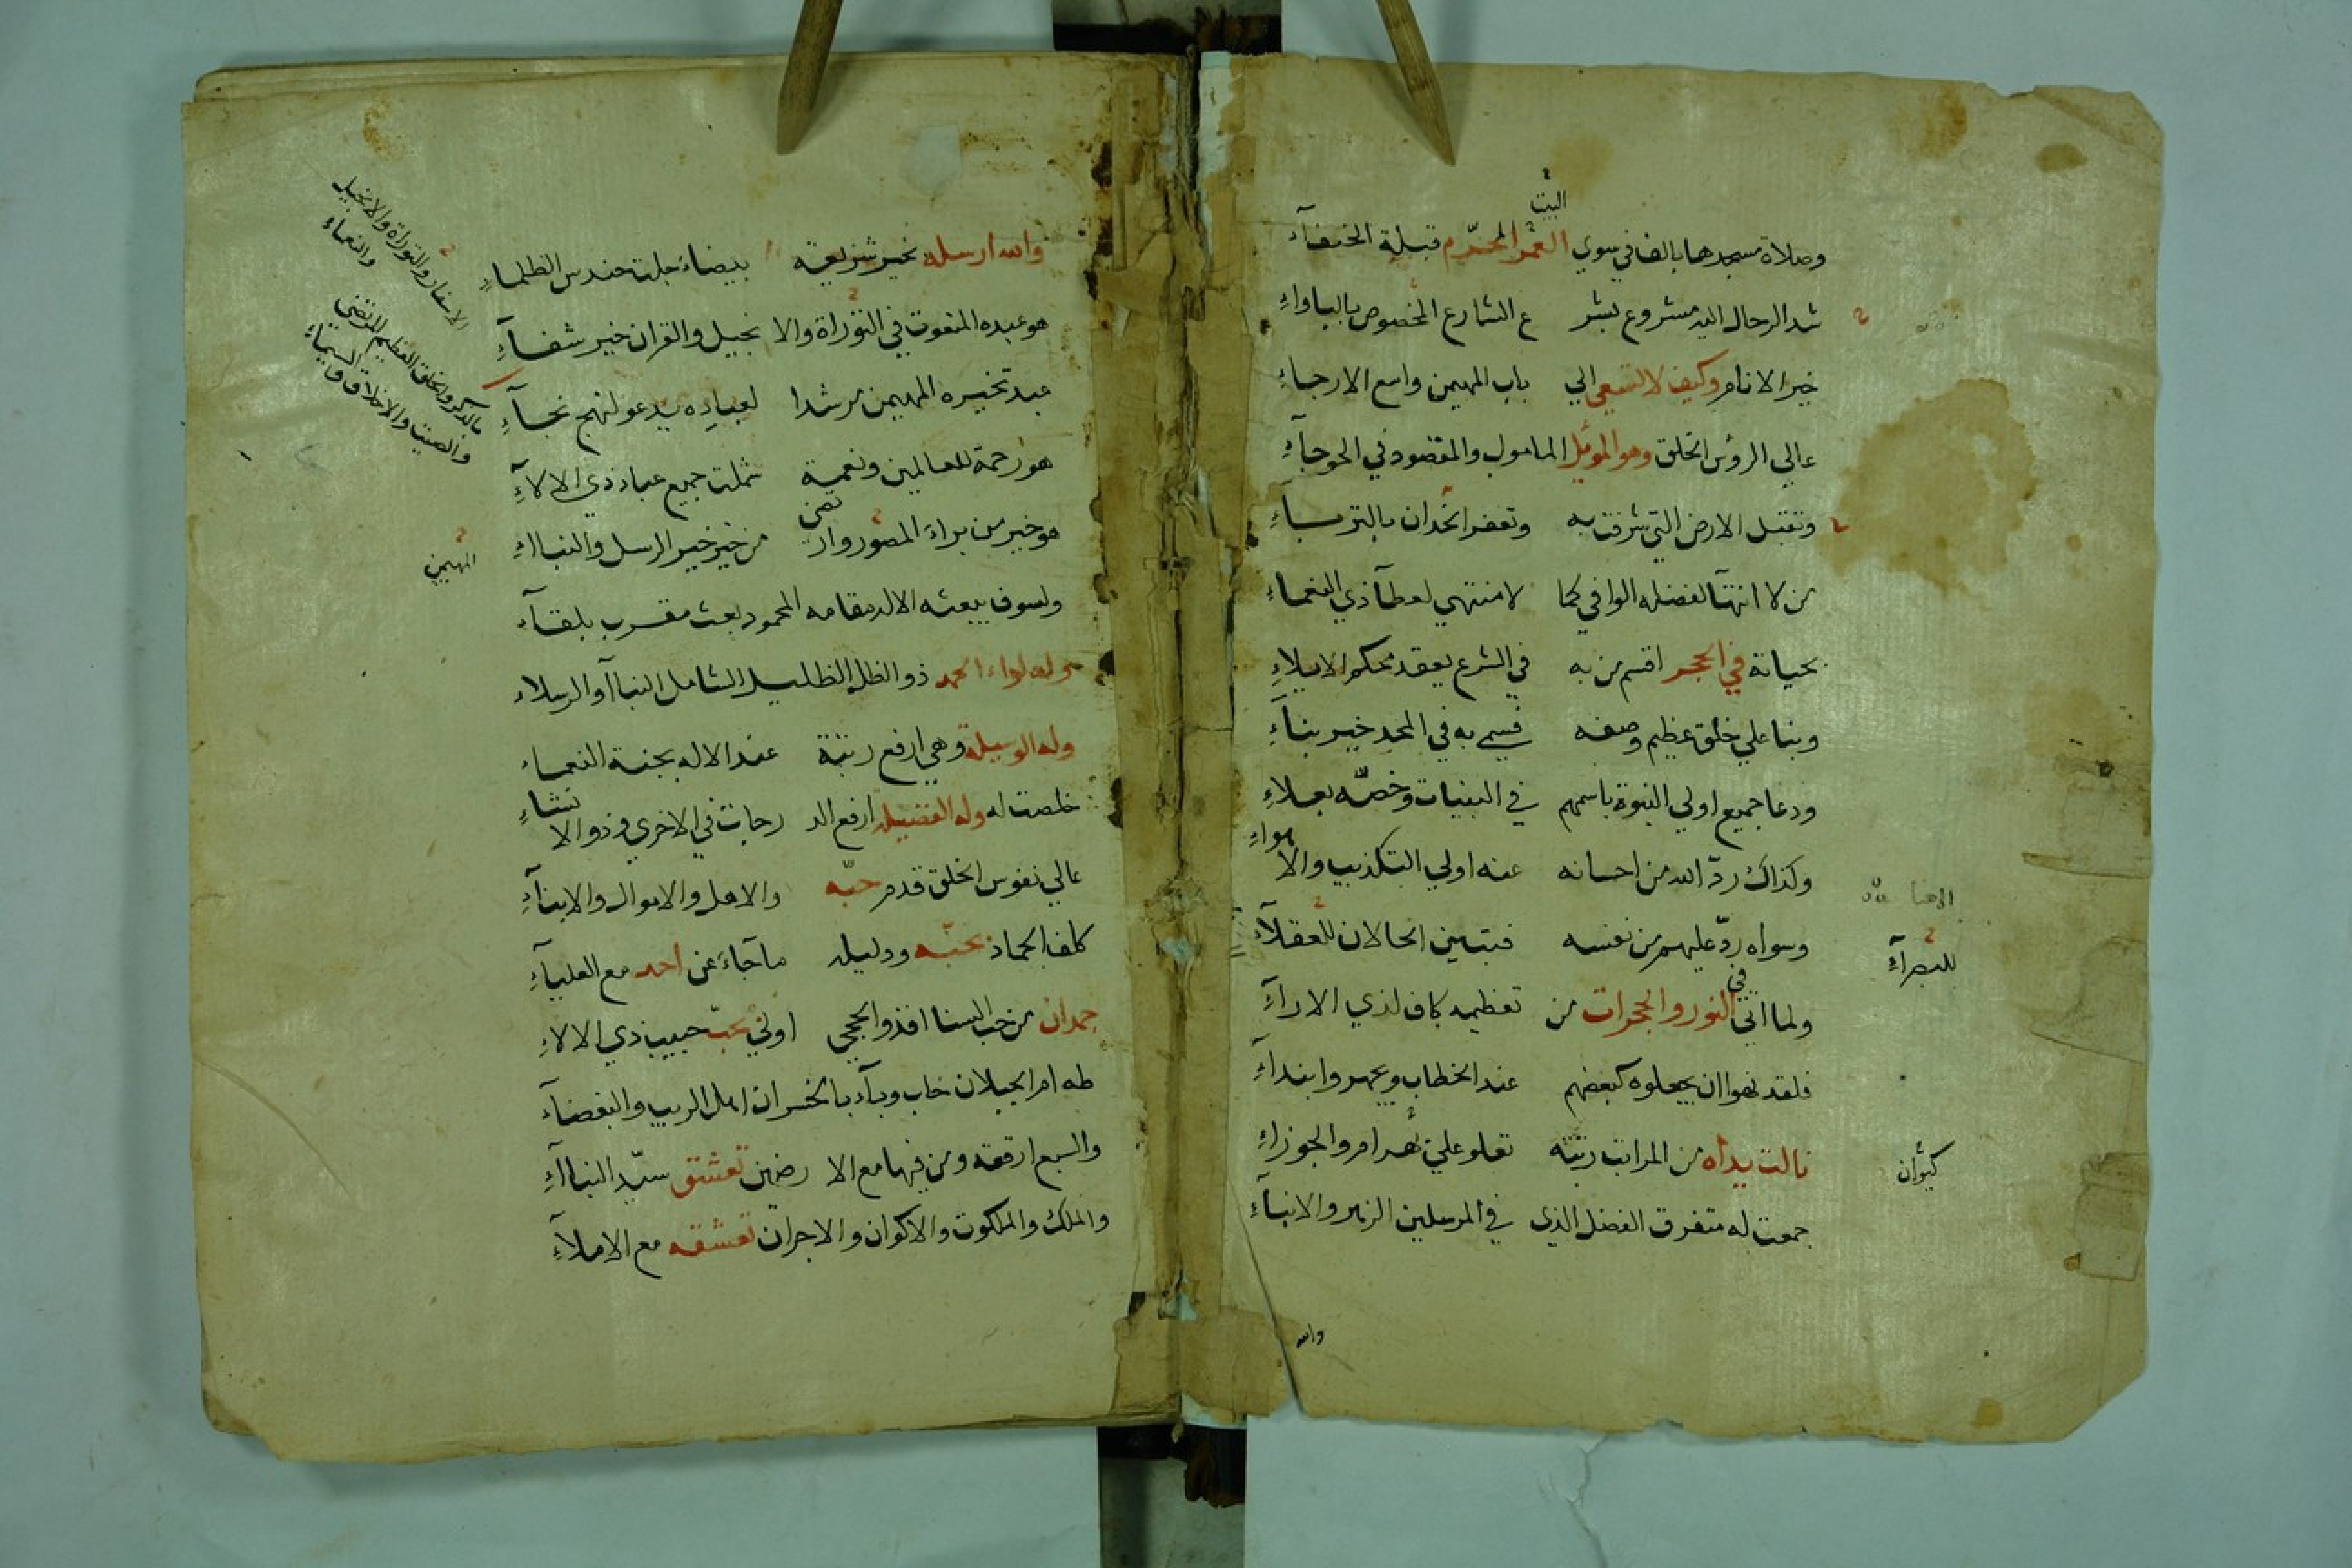 البيت
وصلاة مسجدها بالف في سوي العمر المحرّم قبلة الحنفآء
شد الرحال اليه مشروع بشر ع الشارع المخصوص بالباواءِ
خير الانام وكيف لا لتسعي الي باب المهيمن واسع الارجاءِ
عالي الرؤس الخلق وهو الموئل المامول والمقصود في الحوجآءِ
وتقبل الارض التي شرفت به وتعفر الخدان بالتربآءِ
من لا انتهآ لفضله الوافي كما لا منتهي لعطآ ذي النعماءِ
بحياته في الحجر اقسم من به في الشرع يعقد محكم الايلاءِ
وبنا علي خلق عظيم وصفه فسمي به في المجد خير بنآءِ
ودعا جميع اولي النبوة باسمهم في البينات وخصّه بعلاءِ
وكذاك ردّ الله من احسانه عنه اولي التكذيب والاهواءِ
وسواه ردّ عليهم من نفسه فتباين الحالان للعقلآءِ
للبصرآءِ
ولما اتي في النور والحجرات من تعظيمه كاف لذي الارآءِ
فلقد نهوا ان يجعلوه كبعضهم عند الخطاب ويجهروا بندآءِ
نالت يداه من المراتب رتبته تعلو علي بهرام والجوزاءِ
كيوان
جمعت له متفرق الفضل الذي في المرسلين الزهر والانبآءِ
والله
والله ارسله بخير شريعة بيضاء جلت حندس الظلماءِ
هو عبده المنعوت في التوراة والا نجيل والقران خير شفآءِ
الاسفار والتوراة والانجيل
والنعماءِ
عبد تخيره المهيمن مرشدا لعباده يدعو لنهج نجآءِ
مالذكر والخلق العظيم المرتضى
والصيت والاخلاق والسيماءِ
هو رحمة للعالمين ونعمة شملت جميع عباد ذي الالآءِ
هو خير من براء المصور وارتضى من خير خير الرسل والنباءِ
المهيمن
ولسوف يبعثه الاله مقامه المحمود بعث مقرب بلقآء
وله لواء الحمد ذو الظل الظليل الشامل النباآ والرسلاء
وله الوسيلة وهي ارفع رتبة عند الاله بجنة النعماء
خلصت له وله الفضيله ارفع الد رجات في الاخري وذو الا نشاءِ
عالي نفوس الخلق قدم حبّه والاهل والاموال والابنآءِ
كلف الجماد بحبّه ودليله ما جاء عن احد مع العلياءِ
جمدان من حب السنا افذو الحجي اولي بحبّ حبيب ذي الالاءِ
طه امر الجيلان خاب وبآء بالخسران اهل الريب والبغضآء
والسبع ارقعه ومن فيها مع الا رضين تعشق سيّد النباآءِ
والملك والملكوت والاكوان والاجران تعشقه مع الاملآءِ